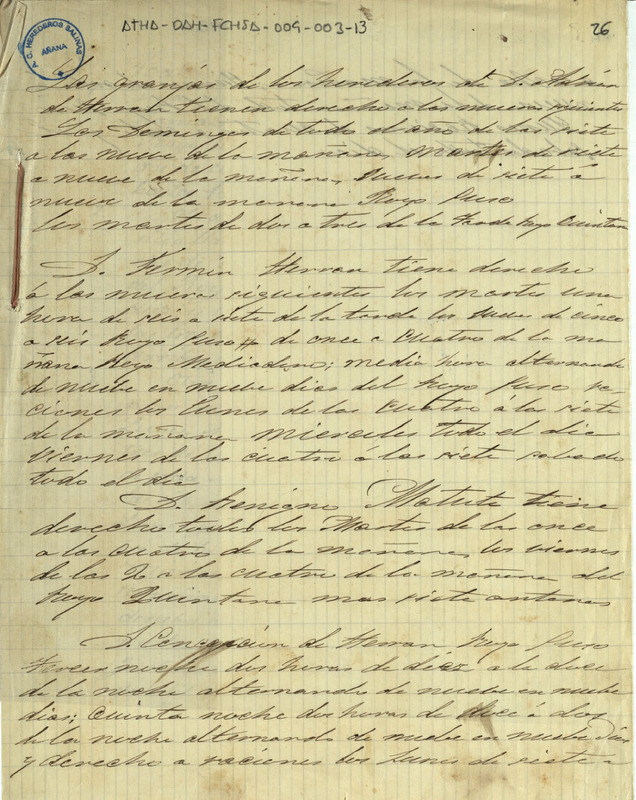 ATHA-DAH-FCHSA-009-003-13
26
A. C. HEREDEROS SALINAS
ARANA
Las granjas de los herederos de D. Adrian
de Herran tienen derecho a las muera siguientes
Los Domingos de todo el año de las siete
a las nueve de la mañana, martes de siete
a nueve de la mañana, Jueves de siete á
nueve de la mañana Royo Puso
los martes de dos a tres de la tarde Royo Quintana
D. Fermin Herran tiene derecho
á las muera siguientes los martes una
hora de seis a siete de la tarde los Jueves de cinco
a seis Royo Puso y de once a cuatro de la ma
ñana Royo Medicadero; media hora alternando
de nueve en nueve dias del Royo Puso ra
ciones los Lunes de las cuatro á las siete
de la mañana miercoles todo el dia
Viernes de las cuatro á las siete sabado
todo el dia
D. Benigno Matute tiene
derecho todos los Martes de las once
a las cuatro de la mañana, los viernes
de las 2 a las cuatro de la mañana del
Royo Quintana mas siete
D. Concepción de Herran Royo Puso
tercer noche dos horas de diez a la doce
de la noche alternando de nueve en nueve
dias; cuinta noche dos horas de doce á dos
de la noche alternando de nueve en nueve dias
y derecho a raciones los Lunes de siete a